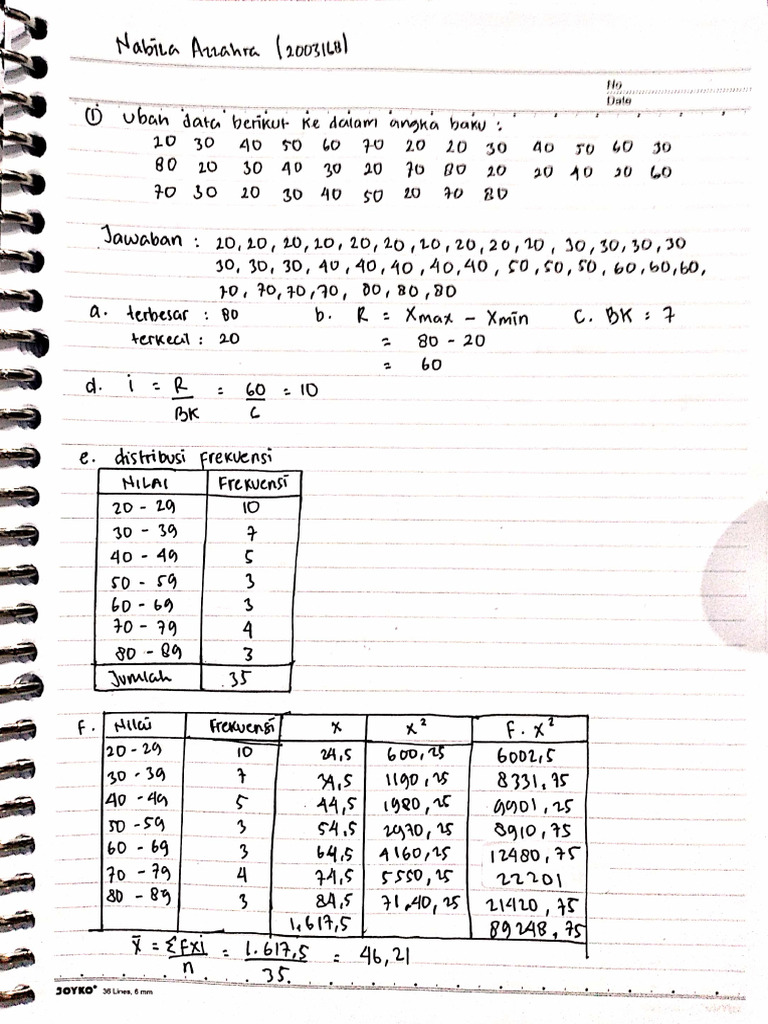 Nabila Azzahra (2003168)
No
Date
① Ubah data berikut ke dalam angka baku :
20 30 40 50 60 70 20 20 30 40 50 60 30
80 20 30 40 30 20 70 80 20 20 40 20 60
70 30 20 30 40 50 20 70 80
Jawaban : 20, 20, 20, 20, 20, 20, 20, 20, 20, 20, 30, 30, 30, 30
30, 30, 30, 40, 40, 40, 40, 40, 50, 50, 50, 60, 60, 60,
70, 70, 70, 70, 80, 80, 80
a. terbesar : 80 b. R = Xmax - Xmin C. BK : 7
terkecil : 20 = 80 - 20
= 60
d. i = R = 60 = 10
BK 6
e. distribusi frekuensi
NILAI Frekuensi
20 - 29 10
30 - 39 7
40 - 49 5
50 - 59 3
60 - 69 3
70 - 79 4
80 - 89 3
Jumlah 35
F. Nilai Frekuensi X X² F. X²
20 - 29 10 24,5 600,25 6002,5
30 - 39 7 34,5 1190,25 8331,75
40 - 49 5 44,5 1980,25 9901,25
50 - 59 3 54,5 2970,25 8910,75
60 - 69 3 64,5 4160,25 12480,75
70 - 79 4 74,5 5550,25 22201
80 - 89 3 84,5 71.40,25 21420,75
1.617,5 89248,75
x̄ = Σfxi = 1.617,5 = 46,21
n 35
JOYKO® 36 Lines, 6 mm